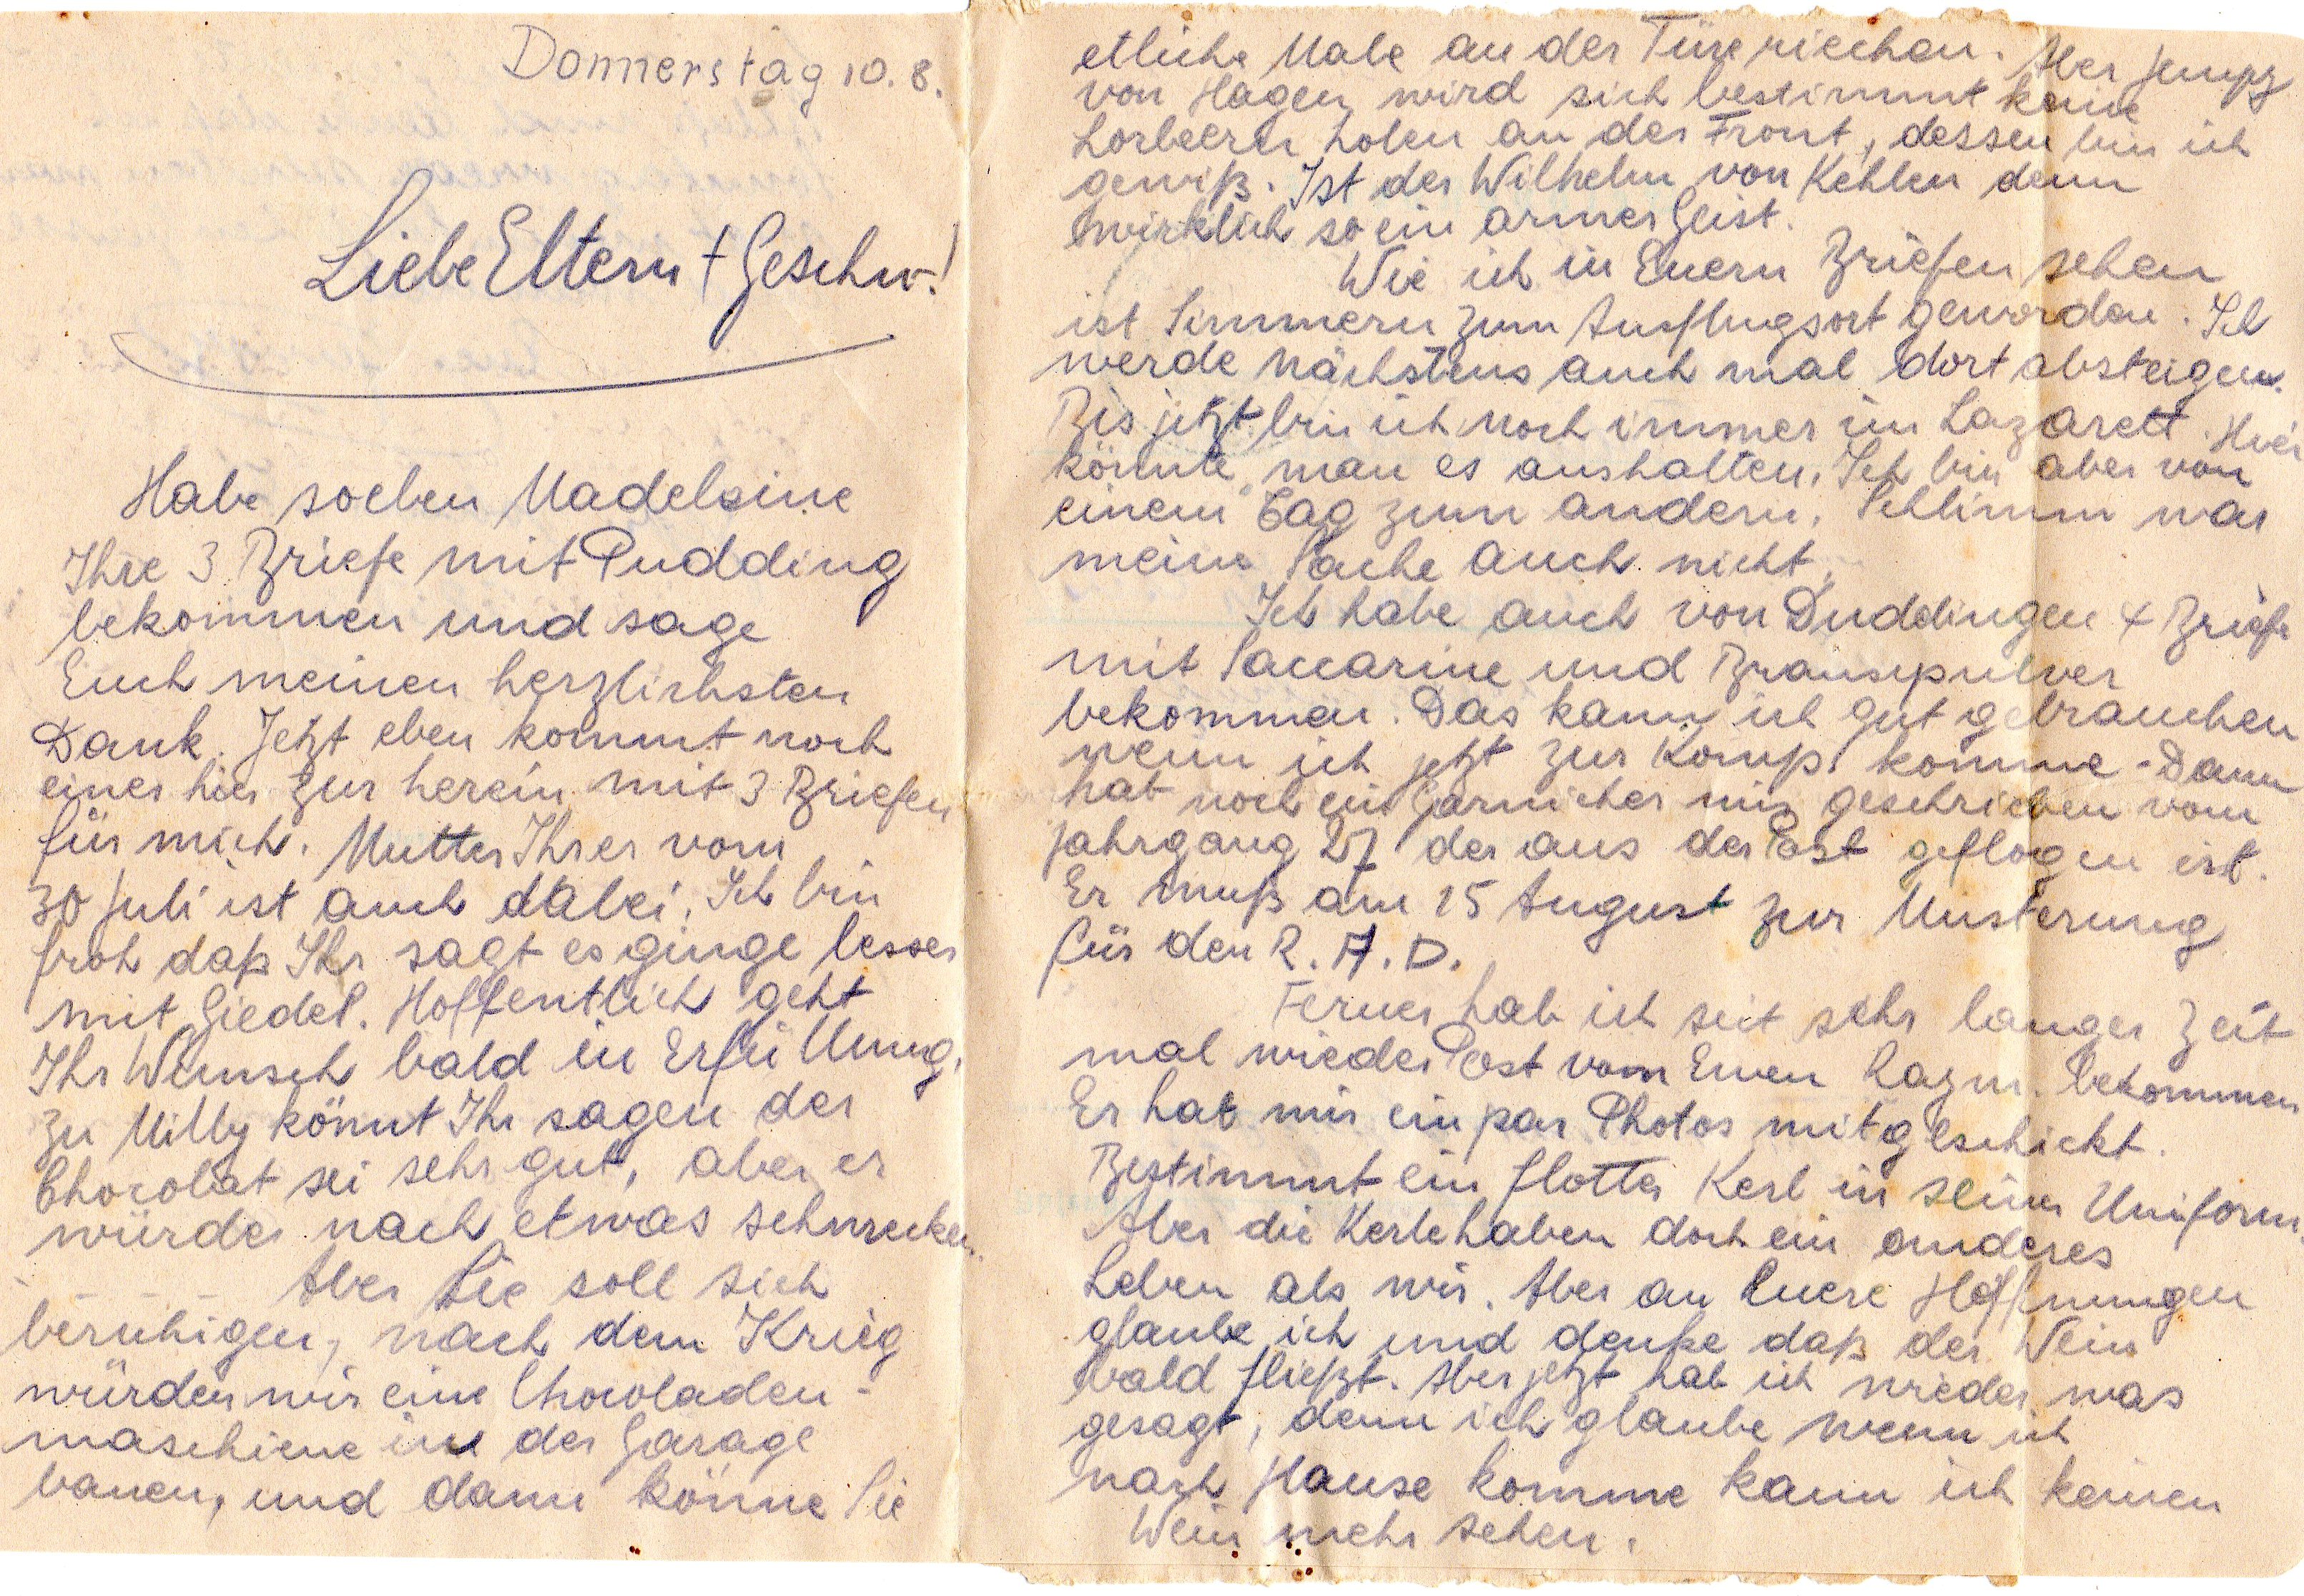 Donnerstag 10.8.
Liebe Eltern + Geschw.!
Habe soeben Madeleine
Ihre 3 Briefe mit Pudding
bekommen und sage
Euch meinen herzlichsten
Dank. Jetzt eben kommt noch
einer hier zur herein mit 3 Briefen
für mich. Mutter Ihrer vom
30 Juli ist auch dabei. Ich bin
froh daß Ihr sagt es ginge besser
mit Giedel. Hoffentlich geht
Ihr Wunsch bald in Erfüllung.
Zu Milly könnt Ihr sagen der
Chocolat sei sehr gut, aber er
würde nach etwas schmecken.
Aber Sie soll sich
beruhigen, nach dem Krieg
würden wir eine Chocoladen-
maschiene in der Garage
bauen, und dann könne Sie
etliche Male an der Türe riechen. Aber Jempy
von Hagen wird sich bestimmt keine
Lorbeern holen an der Front, dessen bin ich
gewiß. Ist der Wilhelm von Kehlen denn
wirklich so ein armer Geist.
Wie ich in Euern Briefen sehen
ist Simmern zum Ausflugsort geworden. Ich
werde nächstens auch mal dort absteigen.
Bis jetzt bin ich noch immer im Lazarett. Hier
könnte man es aushalten. Ich bin aber von
einem Tag zum andern. Schlimm war
meine Sache auch nicht.
Ich habe auch von Duddingen 4 Briefe
mit Saccarine und Brausepulver
bekommen. Das kann ich gut gebrauchen
wenn ich jetzt zur Komp. komme. Dann
hat noch ein Garnicher mir geschrieben vom
Jahrgang 27 der aus der Post geflogen ist.
Er muß am 15 August zur Musterung
für den R.A.D.
Ferner hab ich seit sehr langer Zeit
mal wieder Post vom Ewen Raym. bekommen
Er hat mir ein par Photos mitgeschickt.
Bestimmt ein flotter Kerl in seiner Uniform.
Aber die Kerle haben doch ein anderes
Leben als wir. Aber an Euere Hoffnungen
glaube ich und denke daß der Wein
bald fließt. Aber jetzt hab ich wieder was
gesagt, denn ich glaube wenn ich
nach Hause komme kann ich keinen
Wein mehr sehen.